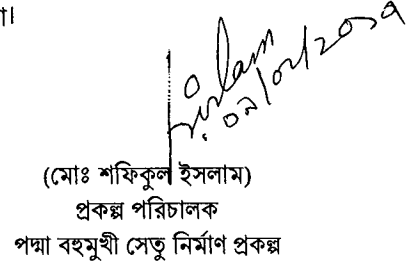 ০৯/০২/২০১৭
(মোঃ শফিকুল ইসলাম)
প্রকল্প পরিচালক
পদ্মা বহুমুখী সেতু নির্মাণ প্রকল্প